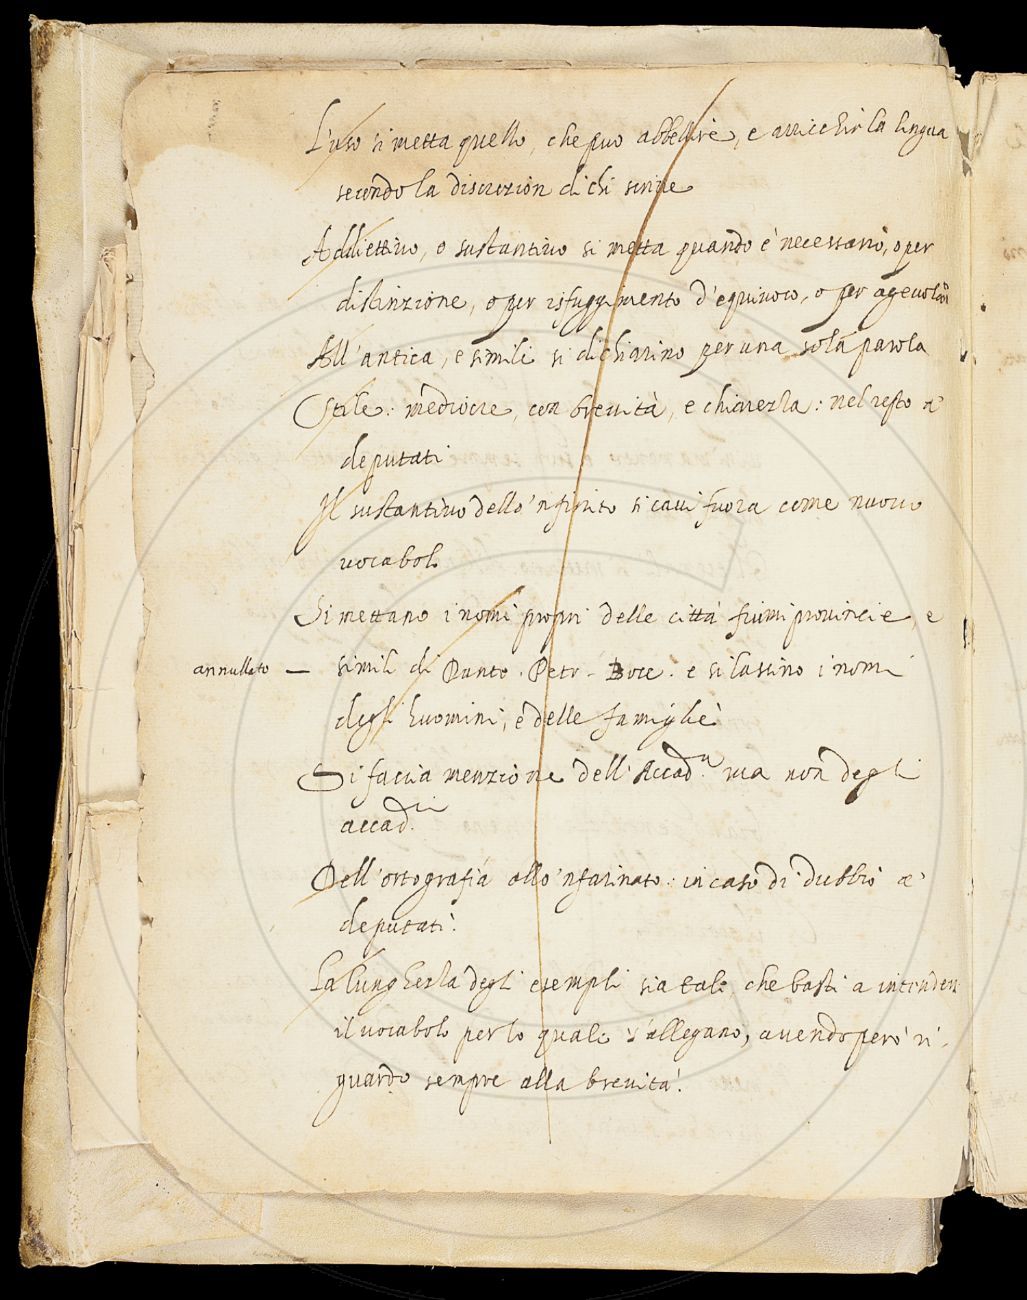 L'uso si metta quello, che puo abbellire, e arricchir la lingua
secondo la discrezion di chi scrive
Addiettivo, o sustantivo si metta quando è necessario, o per
distinzione, o per isfuggimento d'equivoco, o per agevolar
All'antica, e simili si dichiarino per una sola parola
Stile: mediocre, con brevità, e chiarezza: nel resto a'
deputati
Il sustantivo dello 'nfinito si cavi fuora come nuovo
vocabolo
Si mettano i nomi propri delle città fiumi provincie, e
annullato — simili di Dante. Petr. Bocc. e si lascino i nomi
degli huomini, e delle famiglie
Si faccia menzione dell'Accad.a ma non degli
accad.ci
Dell'ortografia allo 'nfarinato: in caso di dubbio a'
deputati.
La lunghezza degli esempli sia tale, che basti a intender
il vocabolo per lo quale s'allegano, avendo però ri-
guardo sempre alla brevità.